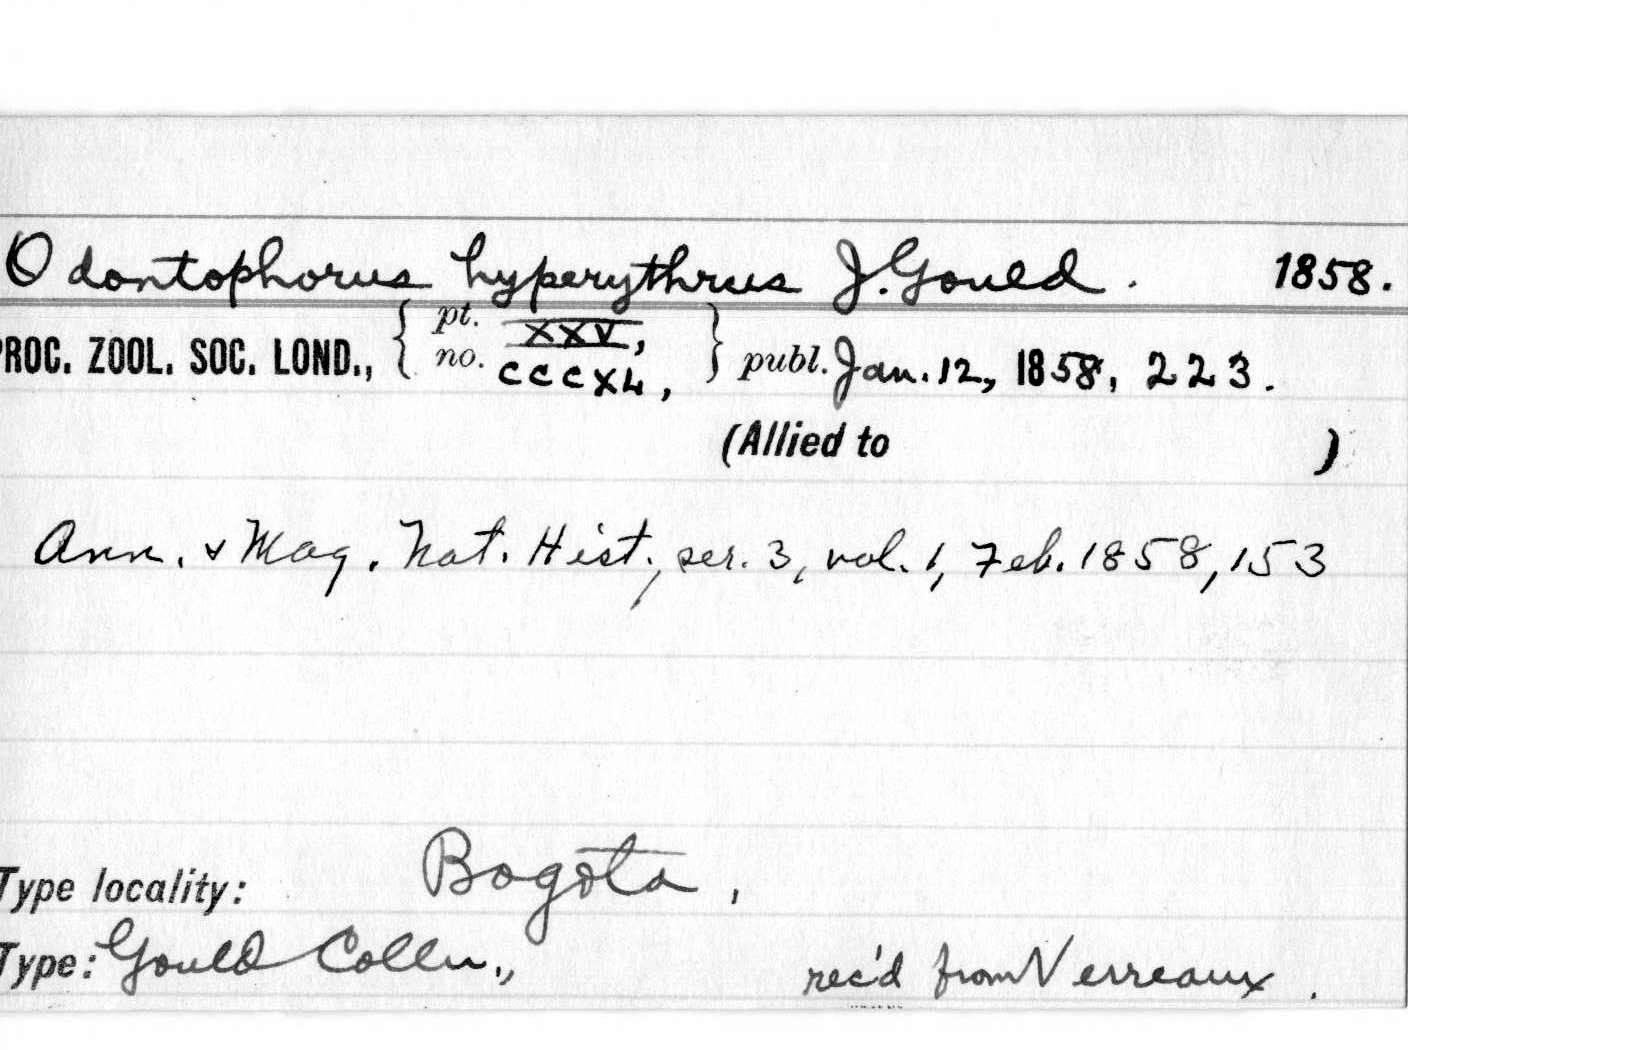 Odontophorus hyperythrus J. Gould. 1858.
PROC. ZOOL. SOC. LOND., { pt. XXV, no. CCCXL, } publ. Jan. 12, 1858, 223.
(Allied to )
Ann. & Mag. Nat. Hist., ser. 3, vol. 1, Feb. 1858, 153
Type locality: Bogota,
Type: Gould Colln., rec'd from Verreaux.